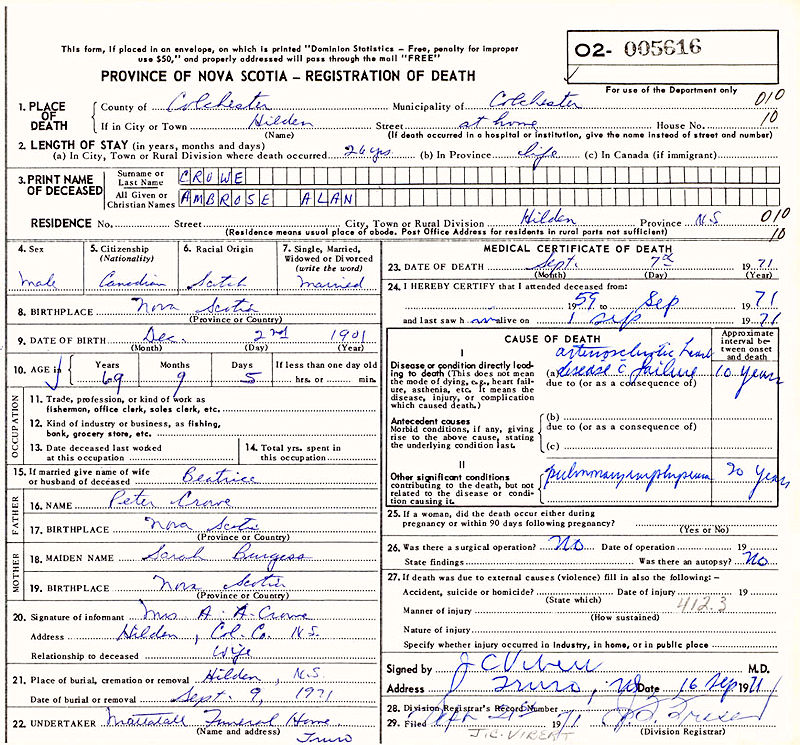 This form, if placed in an envelope, on which is printed "Dominion Statistics - Free, penalty for improper
use $50," and properly addressed will pass through the mail "FREE"
O2- 005616
PROVINCE OF NOVA SCOTIA - REGISTRATION OF DEATH
For use of the Department only
1. PLACE OF DEATH County of Colchester Municipality of Colchester 010
If in City or Town Hilden Street at home House No. 10
(Name) (If death occurred in a hospital or institution, give the name instead of street and number)
2. LENGTH OF STAY (in years, months and days)
(a) In City, Town or Rural Division where death occurred 26 yrs. (b) In Province life (c) In Canada (if immigrant)
3. PRINT NAME OF DECEASED
Surname or Last Name CROWE
All Given or Christian Names AMBROSE ALAN
RESIDENCE No. Street City, Town or Rural Division Hilden Province N.S 010
(Residence means usual place of abode. Post Office Address for residents in rural parts not sufficient) 10
4. Sex
Male
5. Citizenship (Nationality)
Canadian
6. Racial Origin
Scotch
7. Single, Married, Widowed or Divorced (write the word)
Married
8. BIRTHPLACE Nova Scotia
(Province or Country)
9. DATE OF BIRTH Dec. 2nd 1901
(Month) (Day) (Year)
10. AGE in Years Months Days If less than one day old
69 9 5 hrs. or min.
OCCUPATION
11. Trade, profession, or kind of work as
fishermon, office clerk, sales clerk, etc.
12. Kind of industry or business, as fishing,
bank, grocery store, etc.
13. Date deceased last worked
at this occupation
14. Total yrs. spent in
this occupation
15. If married give name of wife
or husband of deceased Beatrice
FATHER
16. NAME Peter Crowe
17. BIRTHPLACE Nova Scotia
(Province or Country)
MOTHER
18. MAIDEN NAME Sarah Burgess
19. BIRTHPLACE Nova Scotia
(Province or Country)
20. Signature of informant Mrs A. A. Crowe
Address Hilden, Col. Co. N.S.
Relationship to deceased Wife
21. Place of burial, cremation or removal Hilden, N.S.
Date of burial or removal Sept. 9, 1971
22. UNDERTAKER Mattatall Funeral Home
(Name and address) Truro
MEDICAL CERTIFICATE OF DEATH
23. DATE OF DEATH Sept. 7th 1971
(Month) (Day) (Year)
24. I HEREBY CERTIFY that I attended deceased from:
1959 to Sep 1971
and last saw h alive on 1 Sep 1971
CAUSE OF DEATH
Approximate interval between onset and death
I
Disease or condition directly leading to death (This does not
the mode of dying, e.g., heart failure, asthenia, etc. It means the
disease, injury, or complication
which caused death.)
arteriosclerotic heart
(a) disease c failure 10 years
due to (or as a consequence of)
Antecedent causes
Morbid conditions, if any, giving
rise to the above cause, stating
the underlying condition last.
(b)
due to (or as a consequence of)
(c)
II
Other significant conditions
contributing to the death, but not
related to the disease or condition
causing it.
pulmonary emphysema 20 years
25. If a woman, did the death occur either during
pregnancy or within 90 days following pregnancy?
(Yes or No)
26. Was there a surgical operation? No Date of operation 19
State findings Was there an autopsy? No
27. If death was due to external causes (violence) fill in also the following: -
Accident, suicide or homicide? Date of injury 19
(State which) 412.3
Manner of injury
(How sustained)
Nature of injury
Specify whether injury occurred in Industry, in home, or in public place
Signed by J C Vibert M.D.
Address Truro, NS Date 16 Sep 1971
28. Division Registrar's Record Number
29. Filed 1971
J.C. VIBERT (Division Registrar)